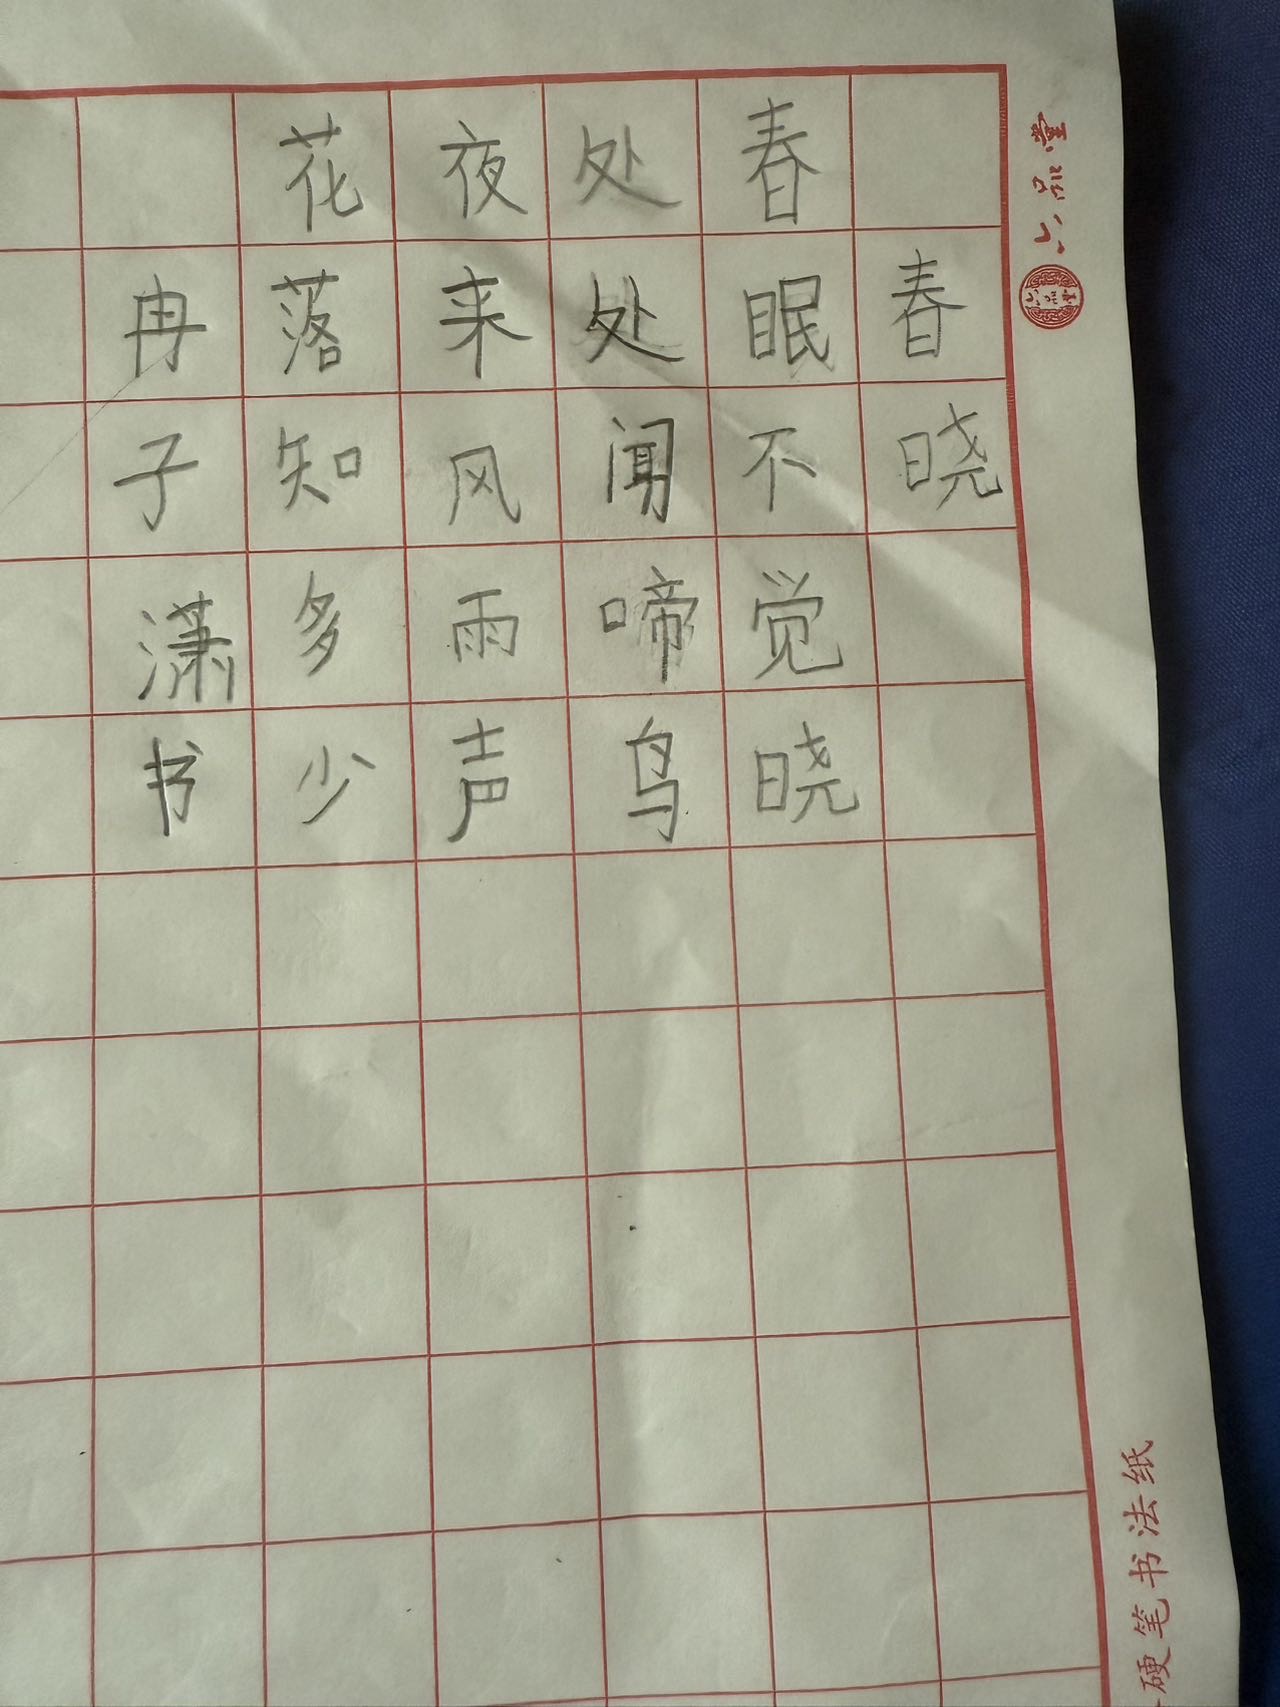 六品堂
六品堂
春晓
春眠不觉晓
处处闻啼鸟
夜来风雨声
花落知多少
冉子潇书
硬笔书法纸